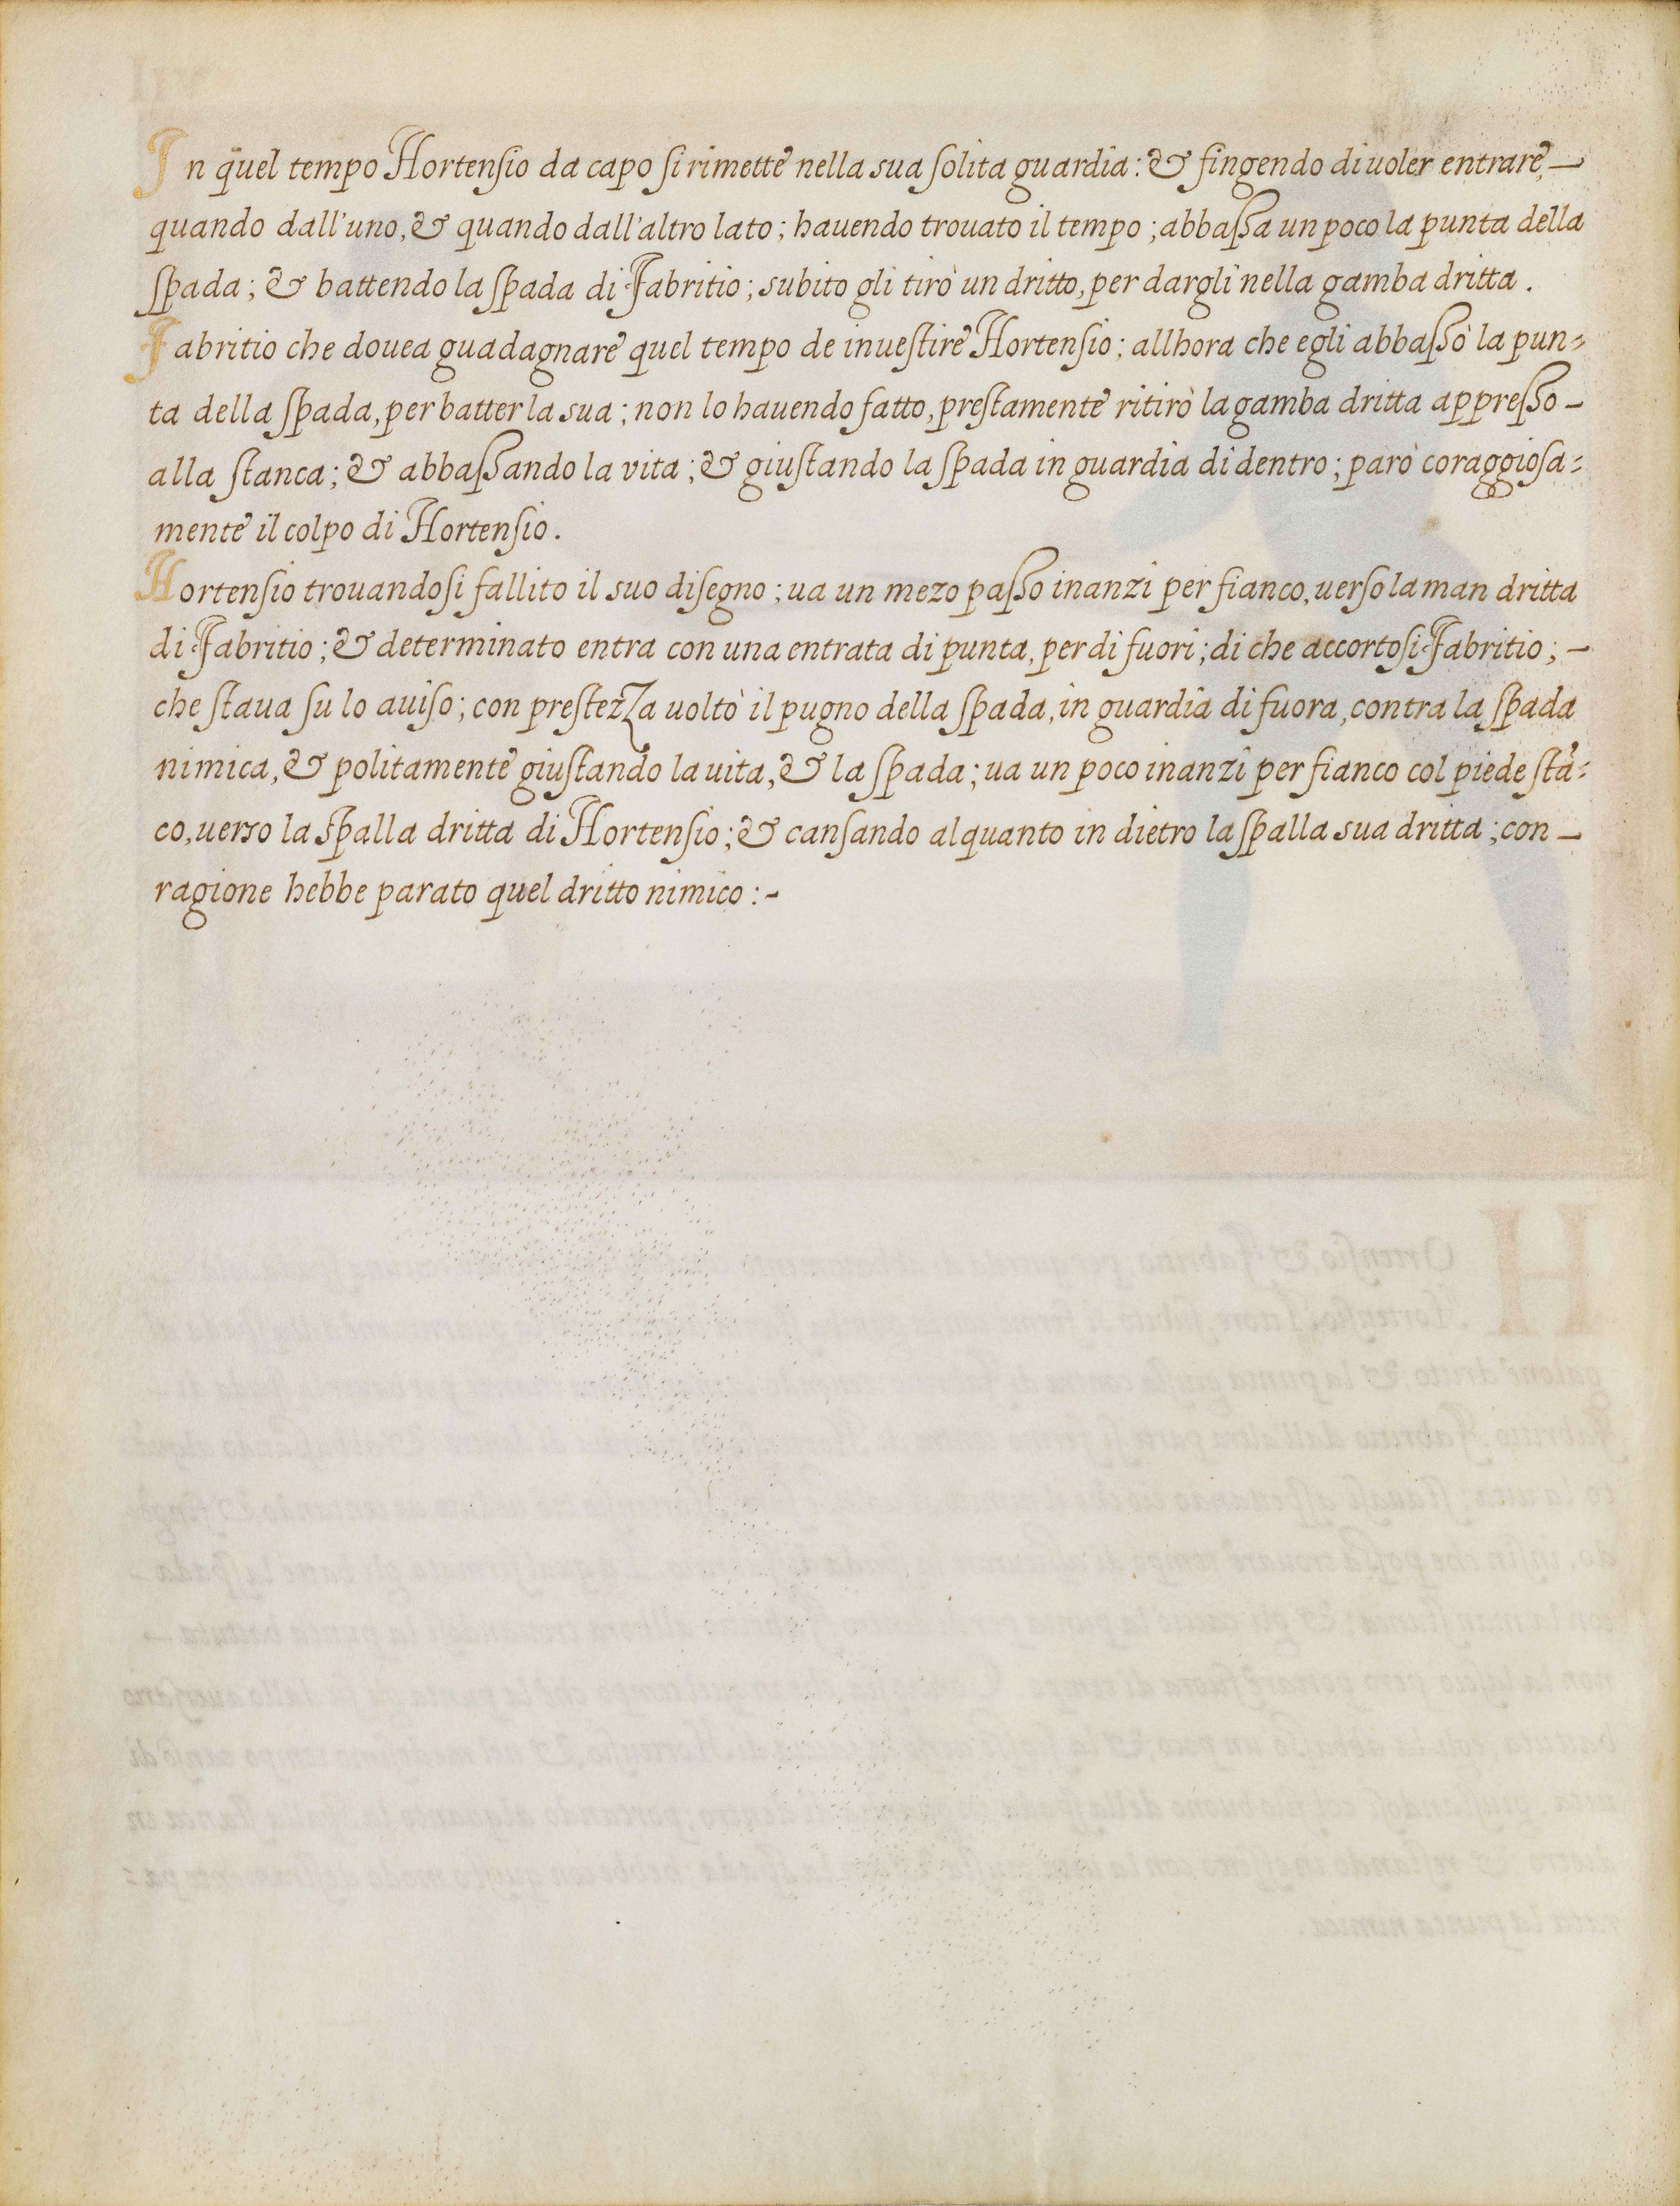 In quel tempo Hortensio da capo si rimette nella sua solita guardia: & fingendo di uoler entrare, —
quando dall'uno, & quando dall'altro lato; hauendo trouato il tempo; abbassa un poco la punta della
spada; & battendo la spada di Fabritio; subito gli tirò un dritto, per dargli nella gamba dritta.
Fabritio che douea guadagnare quel tempo de inuestire Hortensio; allhora che egli abbassò la pun=
ta della spada, per batter la sua; non lo hauendo fatto, prestamente ritirò la gamba dritta appresso —
alla stanca; & abbassando la vita; & giustando la spada in guardia di dentro; parò coraggiosa=
mente il colpo di Hortensio.
Hortensio trouandosi fallito il suo disegno; ua un mezo passo inanzi per fianco, uerso la man dritta
di Fabritio; & determinato entra con una entrata di punta, per di fuori; di che accortosi Fabritio; —
che staua su lo auiso; con prestezza uoltò il pugno della spada, in guardia di fuora, contra la spada
nimica, & politamente giustando la uita, & la spada; ua un poco inanzi per fianco col piede stā=
co, uerso la spalla dritta di Hortensio; & cansando alquanto in dietro la spalla sua dritta; con —
ragione hebbe parato quel dritto nimico :-